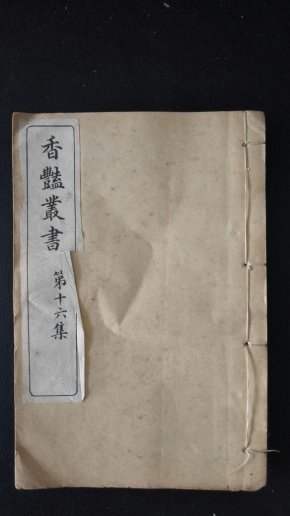 香豔叢書
第十六集